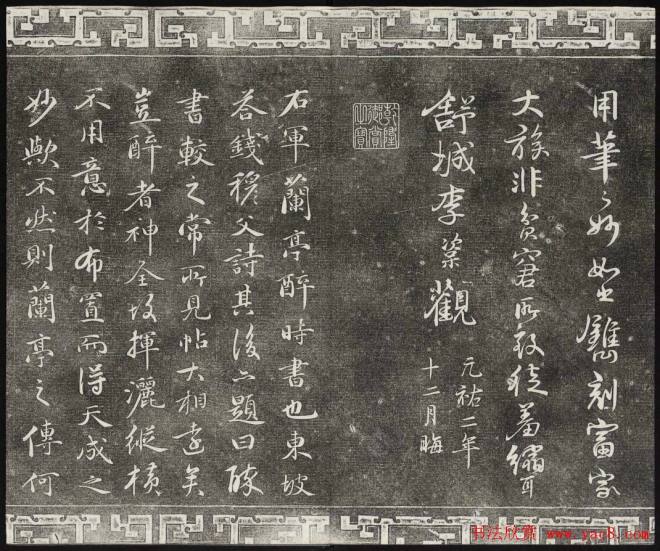 用筆之妙如鐫刻富家
大族非貧窘所敢羞耳
舒城李觀
元祐二年
十二月晦
乾隆御賞之寶
右軍蘭亭醉時書也東坡
答錢穆父詩其後亦題曰醉
書較之常所見帖大相遠矣
豈醉者神全故揮灑縱橫
不用意於布置而得天成之
妙歟不然則蘭亭之傳何
书法欣赏 www.yac8.com